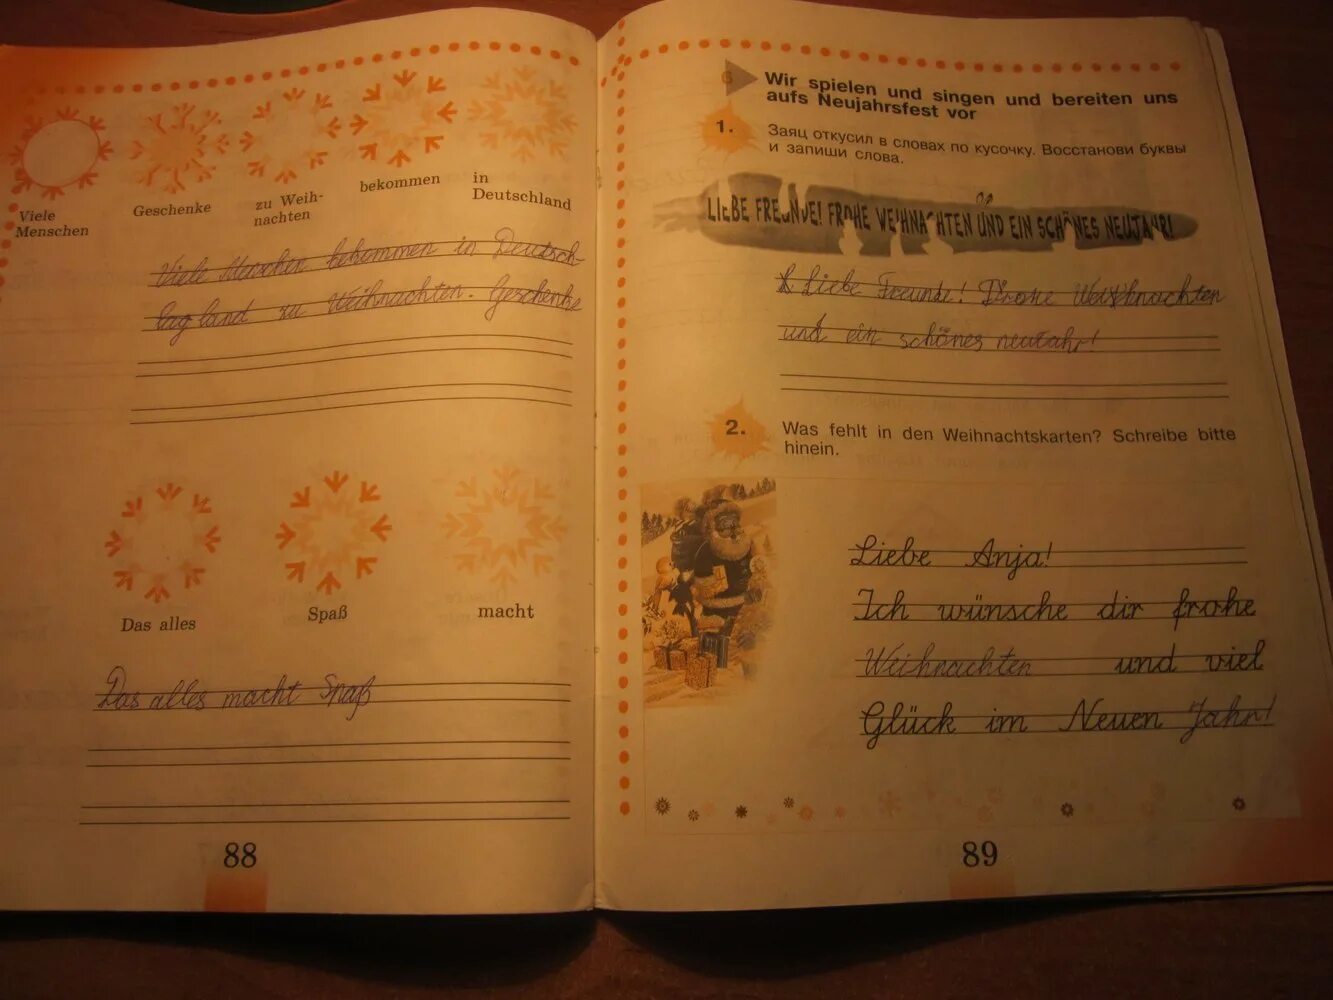 Viele
Menschen
Geschenke
zu Weih-
nachten
bekommen
in
Deutschland
Viele Menschen bekommen in Deutsch-
land zu Weihnachten. Geschenke
Das alles
Spaß
macht
Das alles macht Spaß
88
6
Wir spielen und singen und bereiten uns
aufs Neujahrsfest vor
1.
Заяц откусил в словах по кусочку. Восстанови буквы
и запиши слова.
LIEBE FREUNDE! FROHE WEIHNACHTEN UND EIN SCHÖNES NEUJAHR!
Liebe Freunde! Frohe Weihnachten
und ein schönes neujahr!
2.
Was fehlt in den Weihnachtskarten? Schreibe bitte
hinein.
Liebe Anja!
Ich wünsche dir frohe
Weihnachten und viel
Glück im Neuen Jahr!
89